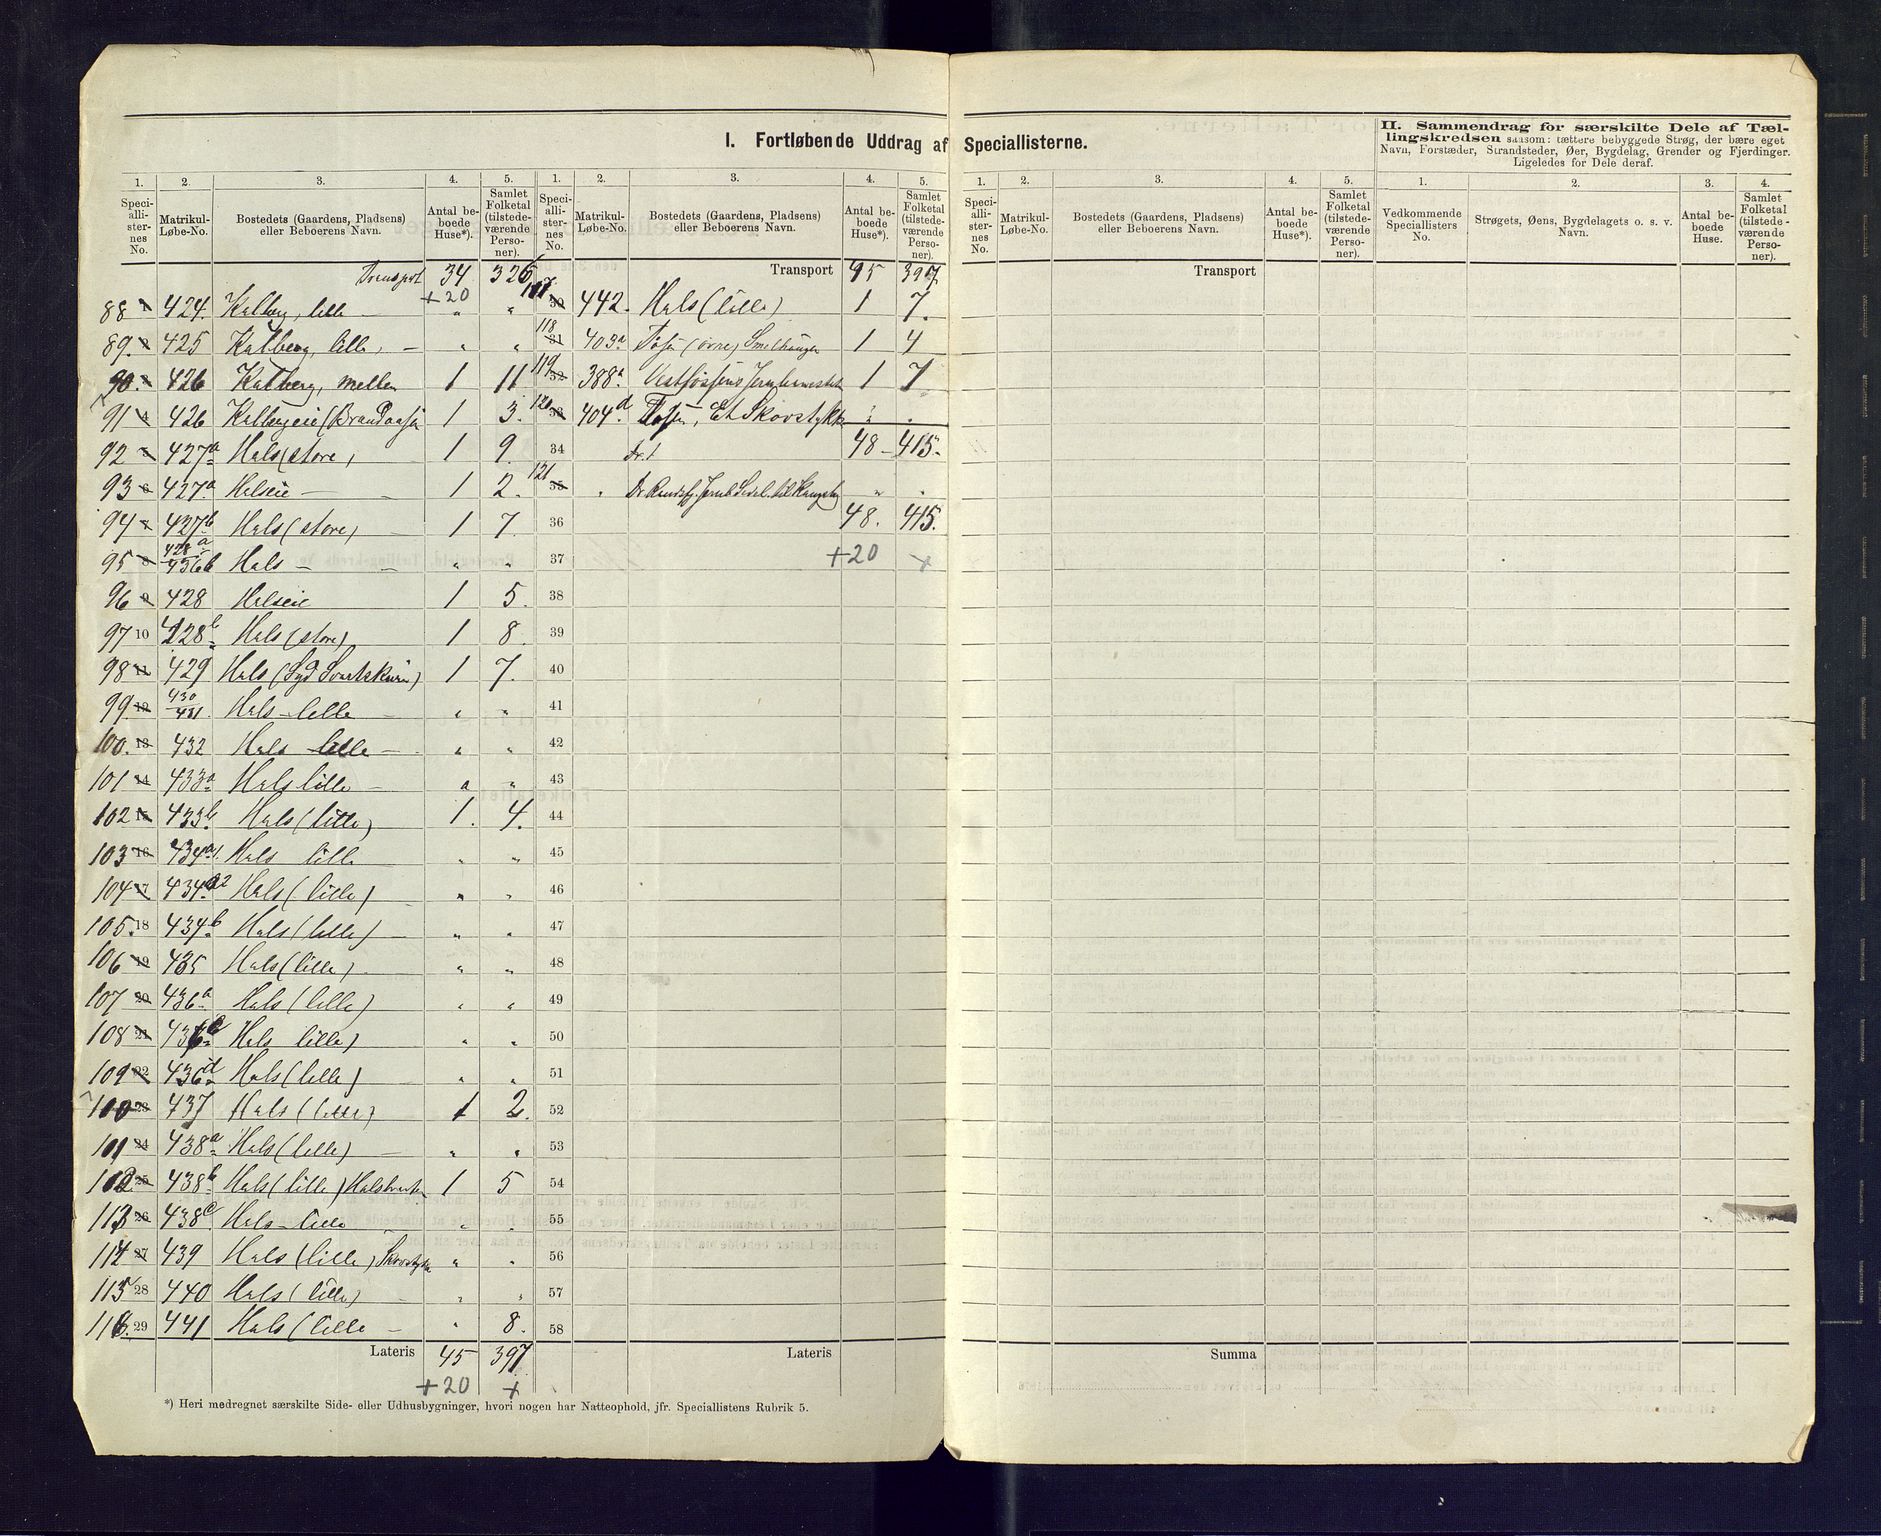 I. Fortløbende Uddrag af Speciallisterne.
II. Sammendrag for særskilte Dele af Tæl-
lingskredsen saasom: tættere bebyggede Strøg, der bære eget
Navn, Forstæder, Strandsteder, Øer, Bygdelag, Grender og Fjerdinger.
Ligeledes for Dele deraf.
1. 2. 3. 4. 5. 1. 2. 3. 4. 5. 1. 2. 3. 4. 5. 1. 2. 3. 4.
Speciallisternes No. Matrikul-Løbe-No. Bostedets (Gaardens, Pladsens) eller Beboerens Navn. Antal beboede Huse*). Samlet Folketal (tilstedeværende Personer).
Speciallisternes No. Matrikul-Løbe-No. Bostedets (Gaardens, Pladsens) eller Beboerens Navn. Antal beboede Huse*). Samlet Folketal (tilstedeværende Personer).
Speciallisternes No. Matrikul-Løbe-No. Bostedets (Gaardens, Pladsens) eller Beboerens Navn. Antal beboede Huse*). Samlet Folketal (tilstedeværende Personer).
Vedkommende Speciallisters No. Strøgets, Øens, Bygdelagets o. s. v. Navn. Antal beboede Huse. Samlet Folketal (tilstedeværende Personer).
Transport 34 326
+20
88 424. Kalberg, lille - " "
89. 425 Kalberg, lille, - " "
90. 426 Kalberg, mellem 1 11
91 426 Kalbergeie (Brandaasen 1 3.
92 427a Hals (store, 1 9.
93 427a Halseie - 1 2.
94 427b Hals (store) 1 7.
95 428a 436b Hals - - " "
96 428 Halseie 1 5.
97 10 428b Hals (store) 1 8.
98 11 429 Hals (Syd 1 7.
99 12 430 431. Hals - lille - " "
100. 13 432 Hals lille - " "
101 14 433a Hals lille - " "
102 15 433b. Hals (lille) 1. 4.
103 16 434a1. Hals lille - " "
104 17 434a2 Hals (lille) " "
105. 18 434b Hals (lille) - " "
106 19 435 Hals (lille) - " "
107 20 436a Hals (lille) " "
108 21 436c Hals lille) " "
109 22 436d Hals (lille) " "
110 23 437 Hals (lille) 1 2.
111 24 438a Hals (lille) - " "
112 25 438b Hals (lille) 1 5
113 26 438c Hals - lille - " "
114 27 439 Hals (lille) " "
115 28 440 Hals (lille) - " "
116. 29 441 Hals (lille - " 8.
Lateris 45 397
+20 +
Transport 45 397
117 30 442. Hals (lille) 1 7.
118 31 403a (övre) 1 4
119 32 388a. 1 7
120 33 404d Et Skovstykke " "
34 48 - 415.
121 35 " " "
36 48. 415.
37 +20 +
38
39
40
41
42
43
44
45
46
47
48
49
50
51
52
53
54
55
56
57
58
Lateris
Transport
Summa
*) Heri medregnet særskilte Side- eller Udhusbygninger, hvori nogen har Natteophold, jfr. Speciallistens Rubrik 5.